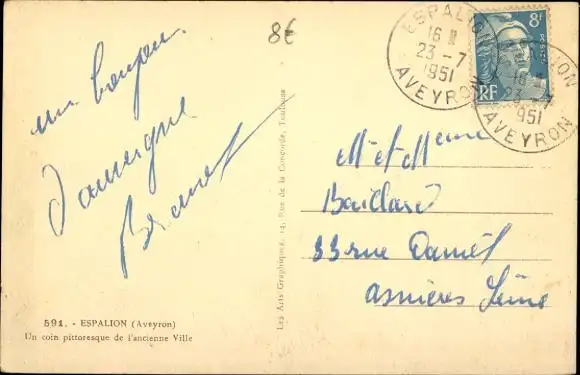 8€
un bonjour
Bonnet
ESPALION
16 H
23 - 7
1951
AVEYRON
8F
POSTES
RF
ESPALION
16 H
23 - 7
1951
AVEYRON
Mr et Mme
Baillard
33 rue Daniel
asnières Seine
Les Arts Graphiques, 14, Rue de la Concorde, Toulouse
591. - ESPALION (Aveyron)
Un coin pittoresque de l'ancienne Ville